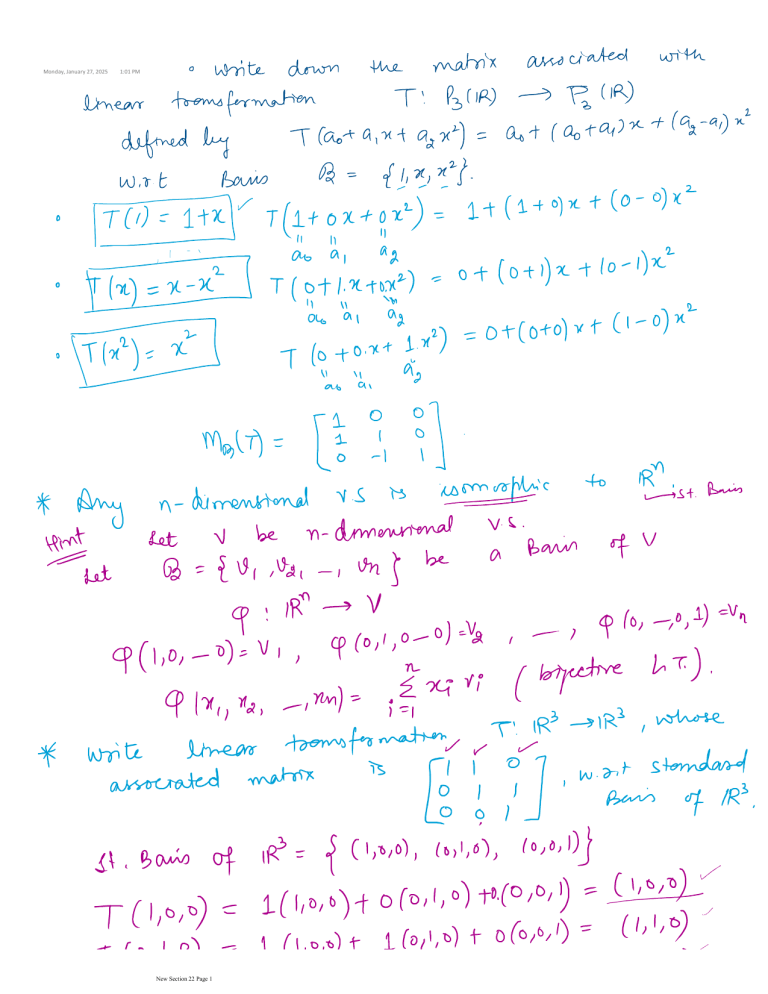 Monday, January 27, 2025 1:01 PM
• write down the matrix associated with
linear transformation T: P₃(ℝ) → P₃(ℝ)
defined by T(a₀+a₁x+a₂x²) = a₀+(a₀+a₁)x+(a₂-a₁)x²
w.r.t Basis B = {1, x, x²}.
• T(1) = 1+x ✓ T(1+0x+0x²) = 1+(1+0)x+(0-0)x²
" " "
a₀ a₁ a₂
• T(x) = x-x² T(0+1.x+0.x²) = 0+(0+1)x+(0-1)x²
" " "
a₀ a₁ a₂
• T(x²) = x² T(0+0.x+1.x²) = 0+(0+0)x+(1-0)x²
" " "
a₀ a₁ a₂
M_B(T) = [1 0 0
1 1 0
0 -1 1]
* Any n-dimensional VS is isomorphic to ℝⁿ
→ st. Basis
Hint Let V be n-dimensional VS.
Let B = {v₁, v₂, –, vₙ} be a Basis of V
φ: ℝⁿ → V
φ(1,0,–0)=v₁, φ(0,1,0–0)=v₂, –, φ(0,–,0,1)=vₙ
φ(x₁, x₂, –, xₙ) = Σⁿᵢ₌₁ xᵢ vᵢ (bijective L.T.).
* write linear transformation T: ℝ³ → ℝ³, whose
associated matrix is [1 1 0
0 1 1
0 0 1], w.r.t standard
Basis of ℝ³.
st. Basis of ℝ³ = {(1,0,0), (0,1,0), (0,0,1)}
T(1,0,0) = 1(1,0,0)+0(0,1,0)+0.(0,0,1) = (1,0,0) ✓
T(0,1,0) = 1(1,0,0)+1(0,1,0)+0(0,0,1) = (1,1,0) ✓
New Section 22 Page 1